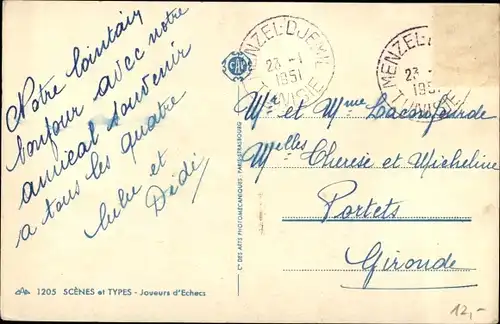 Notre lointain
bonjour avec notre
amical souvenir
a tous les quatre
Lulu et
Dédé
MENZEL-DJEMIL
23 -1
1951
TUNISIE
MENZEL-
23 -
195
TUNISIE
CAP
Mr et Mme Lacomfourde
Melles Therese et Micheline
Portets
Gironde
Cie DES ARTS PHOTOMÉCANIQUES - PARIS-STRASBOURG
CAP 1205 SCÈNES et TYPES - Joueurs d'Echecs
12,-